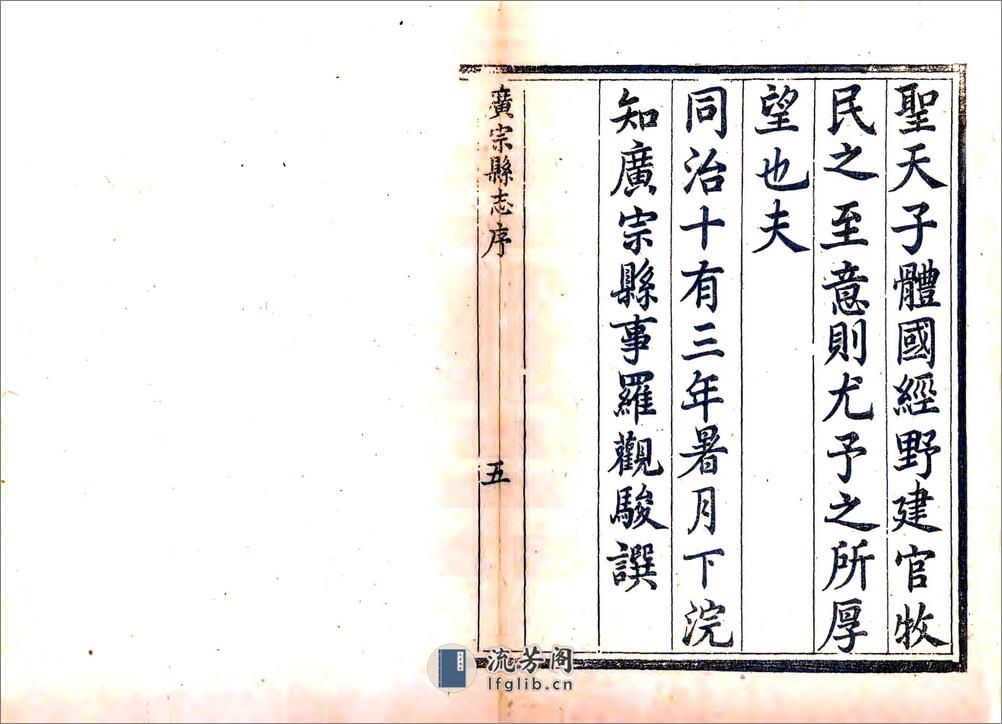 聖天子體國經野建官牧
民之至意則尤予之所厚
望也夫
同治十有三年暑月下浣
知廣宗縣事羅觀駿譔
廣宗縣志序
五
流芳阁
lfglib.cn